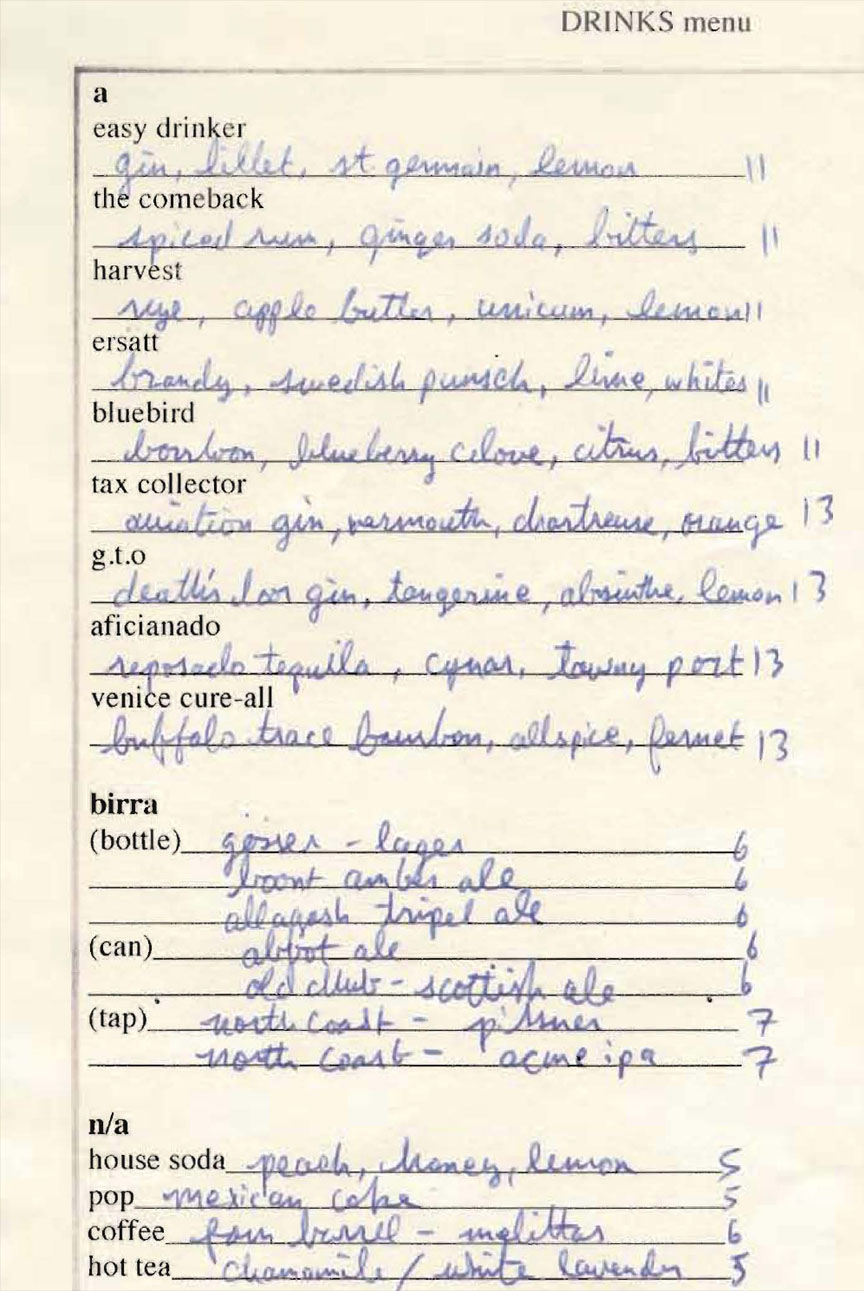 DRINKS menu
a
easy drinker
gin, lillet, st. germain, lemon 11
the comeback
spiced rum, ginger soda, bitters 11
harvest
rye, apple butter, unicum, lemon 11
ersatt
brandy, swedish punsch, lime, whites 11
bluebird
bourbon, blueberry clove, citrus, bitters 11
tax collector
aviation gin, vermouth, chartreuse, orange 13
g.t.o
death's door gin, tangerine, absinthe, lemon 13
aficianado
reposado tequila, cynar, tawny port 13
venice cure-all
buffalo trace bourbon, allspice, fernet 13
birra
(bottle) gösser - lager 6
boont amber ale 6
allagash tripel ale 6
(can) abbot ale 6
old chub - scottish ale 6
(tap) north coast - pilsner 7
north coast - acme ipa 7
n/a
house soda peach, honey, lemon 5
pop mexican coke 5
coffee four barrel - melittas 6
hot tea chamomile / white lavender 5